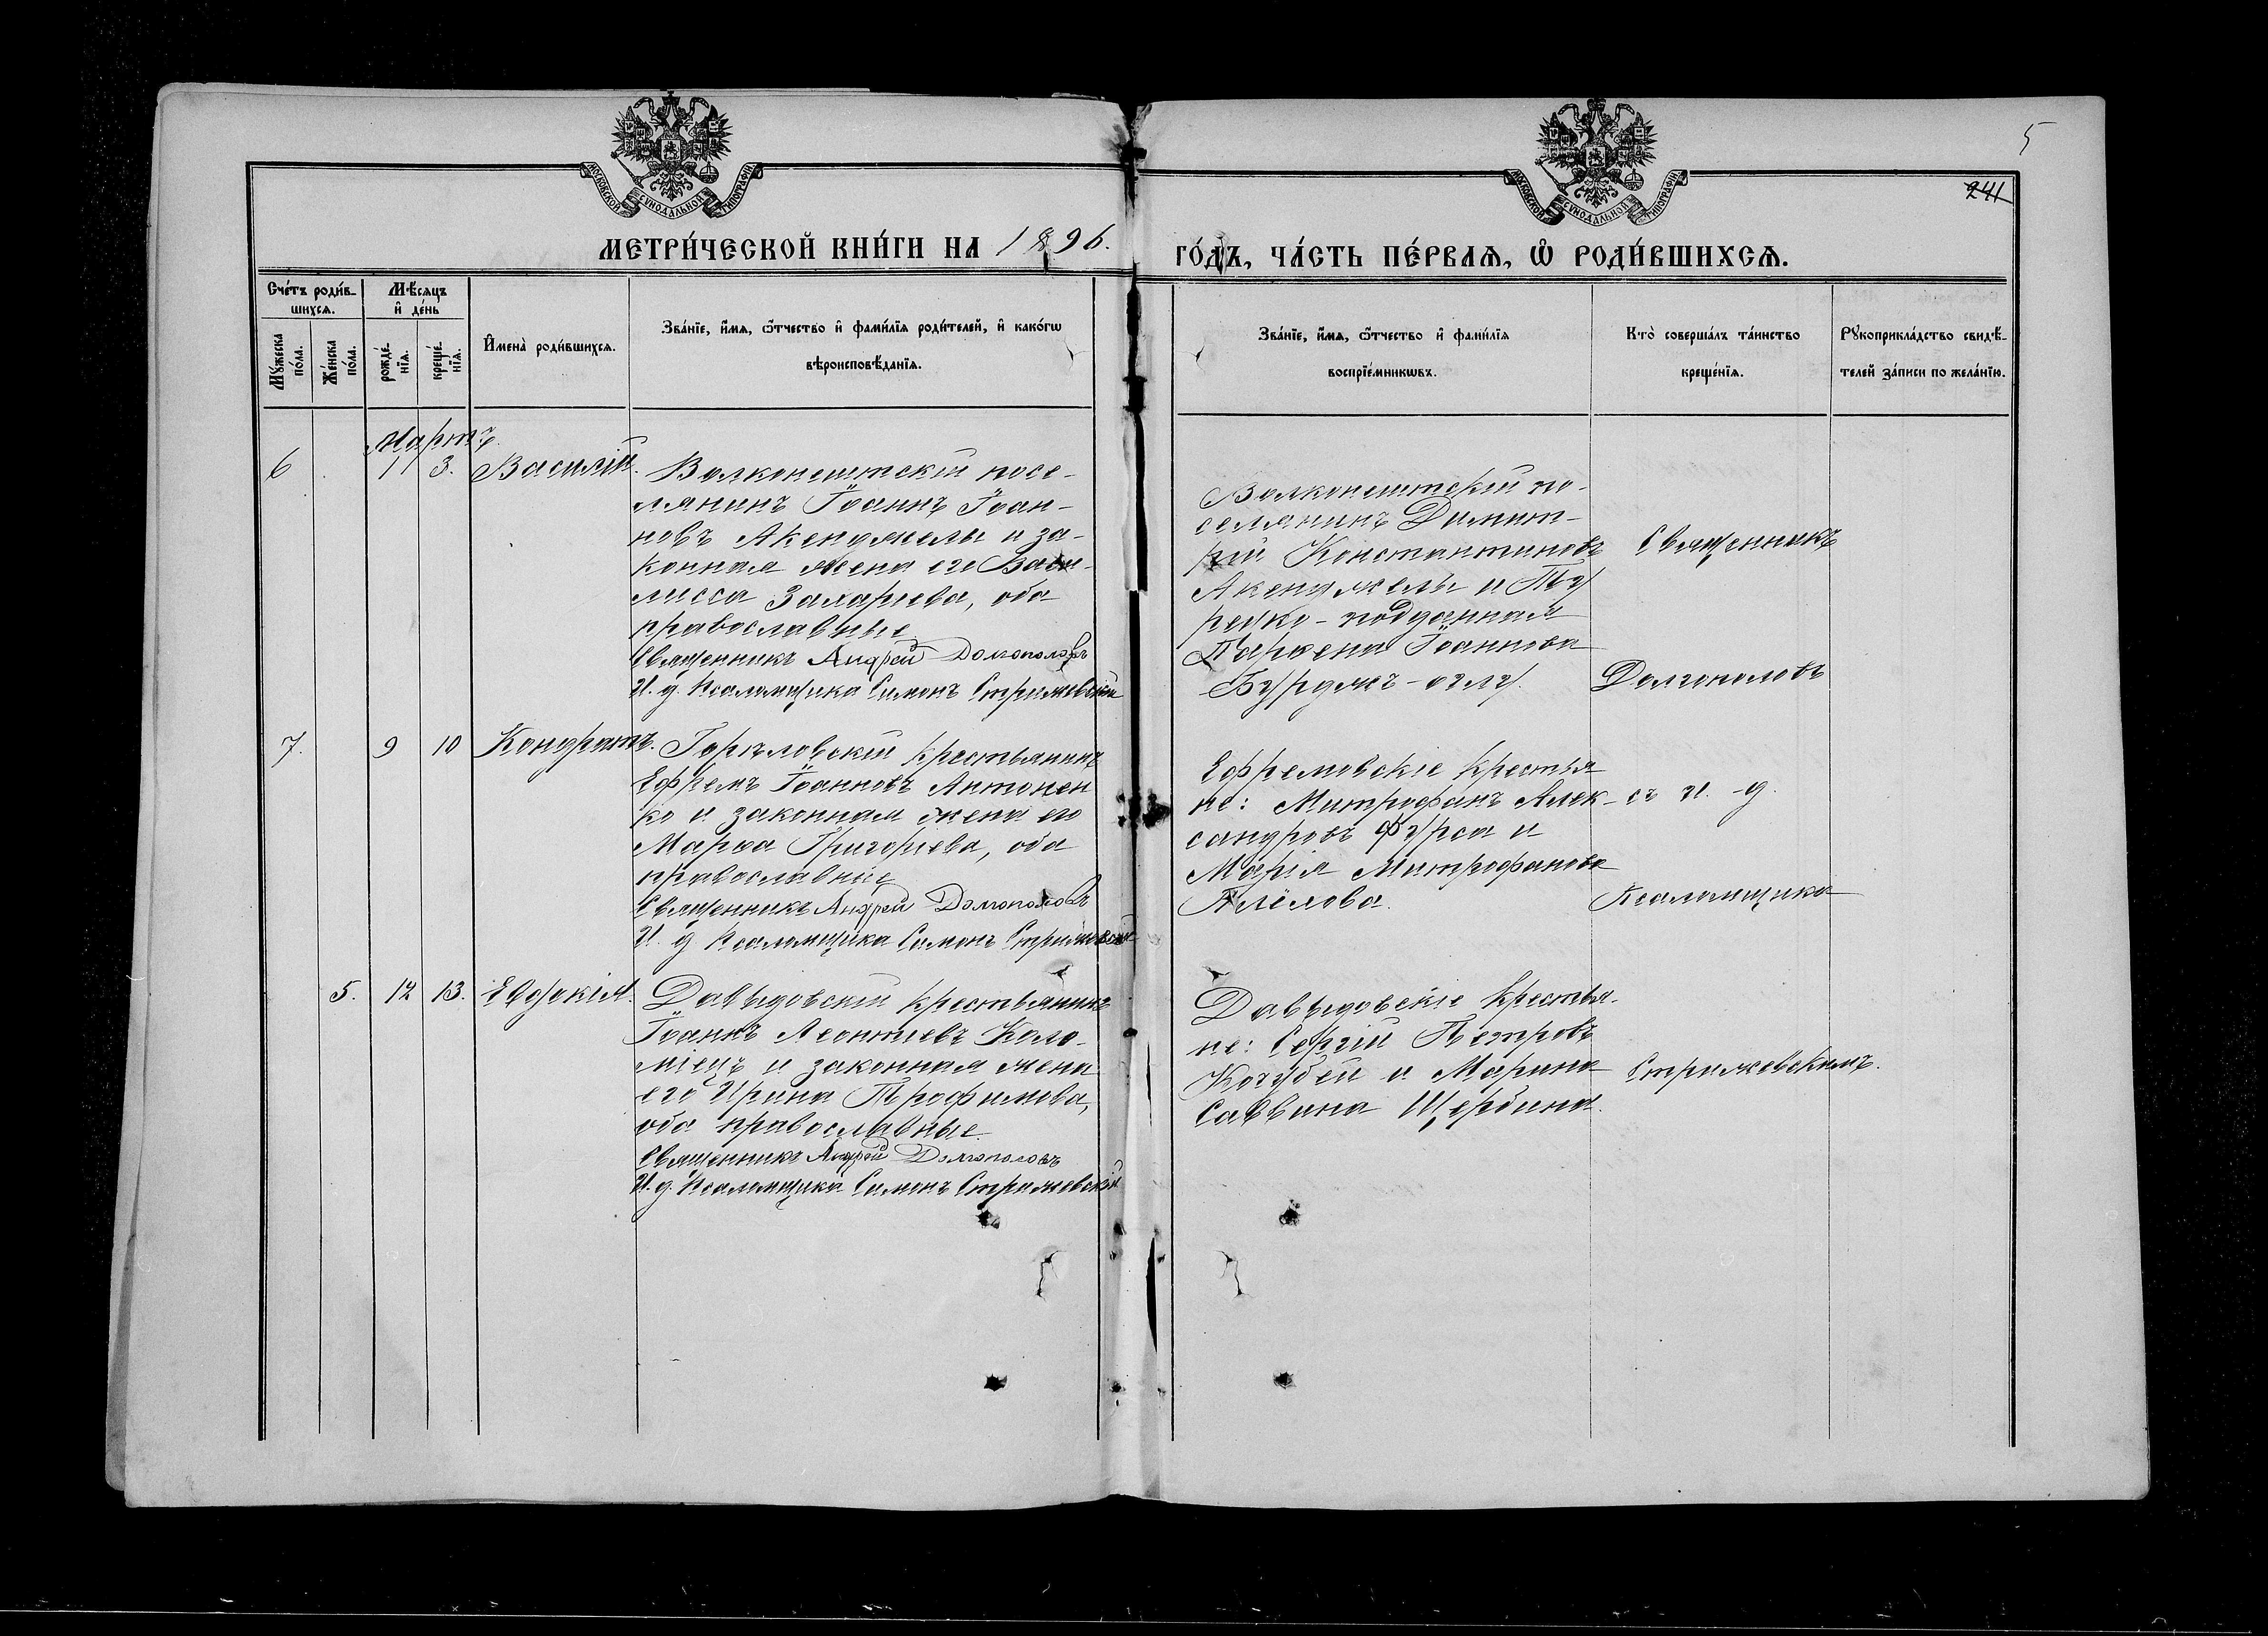 МОСКОВСКОЙ СѴНОДАЛЬНОЙ ТИПОГРАФІИ
МОСКОВСКОЙ СѴНОДАЛЬНОЙ ТИПОГРАФІИ
5
241
МЕТРИ́ЧЕСКОЙ КНИ́ГИ НА 1896.
ГО́ДЪ, ЧА́СТЬ ПЕ́РВАѦ, Ѡ҆ РОДИ́ВШИХСѦ.
Сче́тъ роди́в-
шихсѧ.
Мѣ́сѧцъ
и҆ де́нь
Мꙋ́жеска
по́ла.
Же́нска
по́ла.
рожде́-
нїѧ.
креще́-
нїѧ.
И҆мена̀ роди́вшихсѧ.
Зва́нїе, и҆́мѧ, ѻ҆́тчество и҆ фами́лїѧ роди́телей, и҆ како́гѡ
вѣроисповѣ́данїѧ.
Зва́нїе, и҆́мѧ, ѻ҆́тчество и҆ фами́лїѧ
воспрїе́мникѡвъ.
Кто̀ соверша́лъ та́инство
креще́нїѧ.
Рꙋкоприкла́дство свидѣ́-
телей за́писи по жела́нїю.
Мартъ.
6 1 3. Василій.
Волконештскій посе-
лянинъ Іоаннъ Іоан-
новъ Акенджелы и за-
конная жена его Васи-
лисса Захариева, оба
православные
Священникъ Андрей Долгополовъ
И. д. Псаломщика Симонъ Стрижевскій
Волконештскій по-
селянинъ Димит-
рій Константиновъ
Акенджелы и Ту-
рецко-подданная
Парѳена Іоаннова
Бурджъ-оглу.
Священникъ
Долгополовъ
7. 9 10 Кондратъ.
Горѣловскій крестьянинъ
Ефремъ Іоанновъ Антонен
ко и законная жена его
Марѳа Григорьева, оба
православные
Священникъ Андрей Долгополовъ
И. д. Псаломщика Симонъ Стрижевскій
Ефремовскіе крестья-
не: Митрофанъ Алек-
сандровъ Фурса и
Марія Митрофанова
съ и. д.
Псаломщика
5. 12 13. Евдокія.
Давыдовскій крестьянинъ
Іоаннъ Леонтьевъ Коло-
міецъ и законная жена
его Ирина Трофимова,
оба православные.
Священникъ Андрей Долгополовъ
И. д. Псаломщика Симонъ Стрижевскій
Давыдовскіе крестья-
не: Сергій Петровъ
Кочубей и Марина
Саввина Щербина.
Стрижевскимъ.